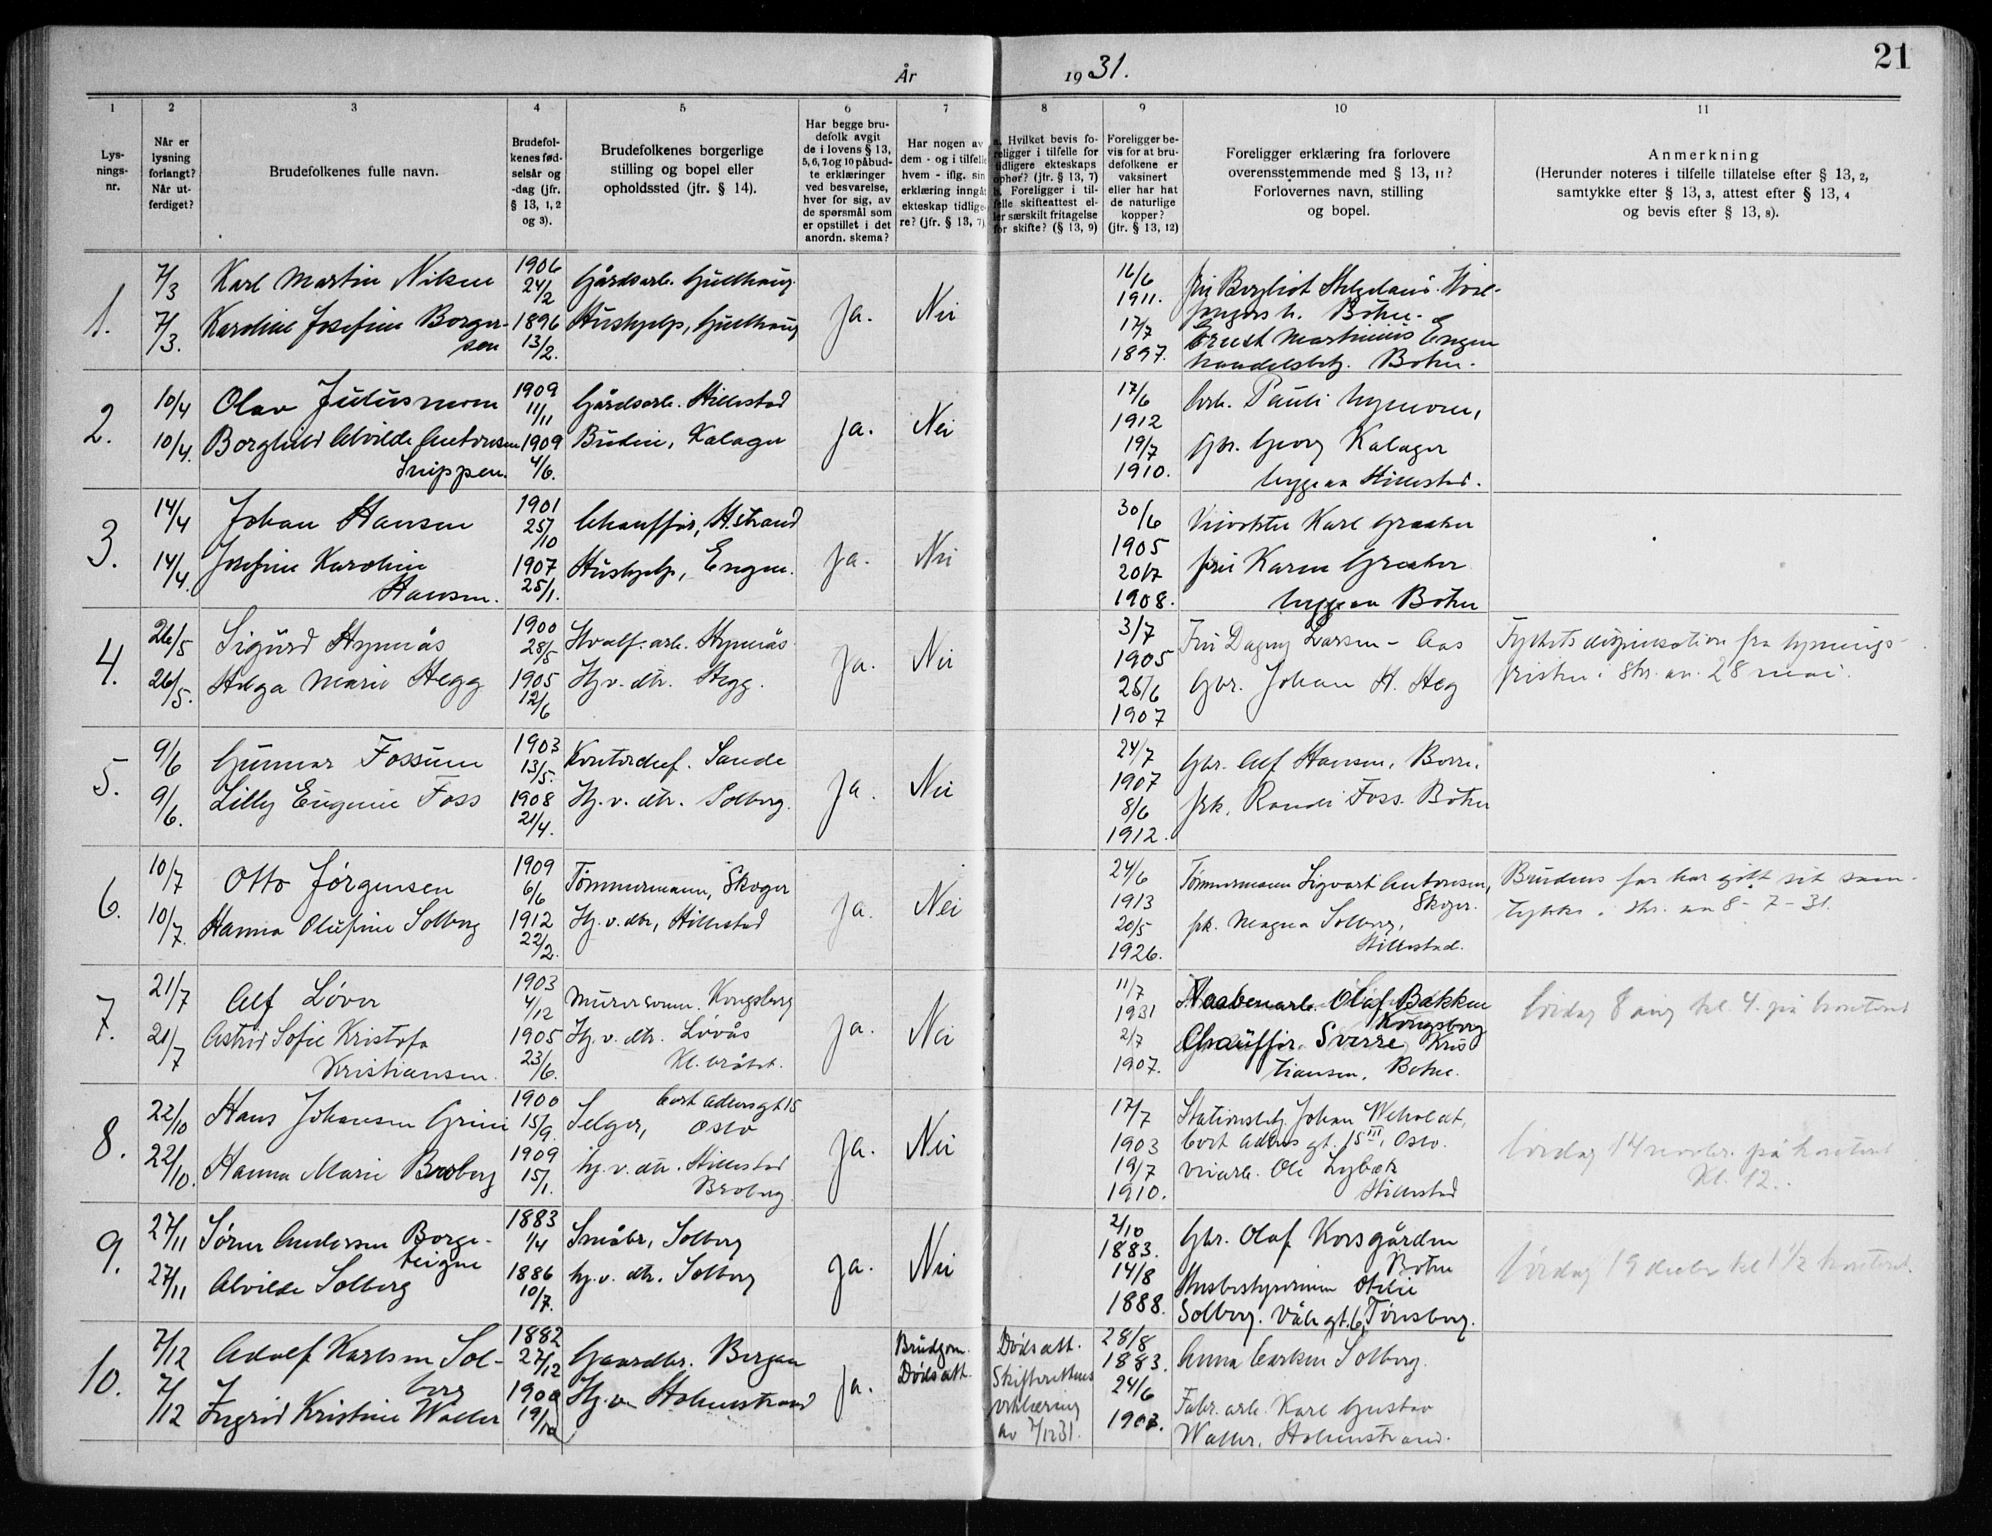 År 1931.
21
1
2
3
4
5
6
7
8
9
10
11
Lys-
nings-
nr.
Når er
lysning
forlangt?
Når ut-
ferdiget?
Brudefolkenes fulle navn.
Brudefol-
kenes fød-
selsår og
-dag (jfr.
§ 13, 1, 2
og 3).
Brudefolkenes borgerlige
stilling og bopel eller
opholdssted (jfr. § 14).
Har begge bru-
defolk avgit
de i lovens § 13,
5, 6, 7 og 10 påbud-
te erklæringer
ved besvarelse,
hver for sig, av
de spørsmål som
er opstillet i det
anordn. skema?
Har nogen av
dem - og i tilfelle
hvem - iflg. sin
erklæring inngåt
ekteskap tidlige-
re? (jfr. § 13, 7)
a. Hvilket bevis fo-
religger i tilfelle for
tidligere ekteskaps
ophør? (jfr. § 13, 7)
b. Foreligger i til-
felle skifteattest el-
ler særskilt fritagelse
for skifte? (§ 13, 9)
Foreligger be-
vis for at bru-
defolkene er
vaksinert
eller har hat
de naturlige
kopper?
(jfr. § 13, 12)
Foreligger erklæring fra forlovere
overensstemmende med § 13, 11?
Forlovernes navn, stilling
og bopel.
Anmerkning
(Herunder noteres i tilfelle tillatelse efter § 13, 2,
samtykke efter § 13, 3, attest efter § 13, 4
og bevis efter § 13, 8).
1.
7/3
Karl Martin Nilsen
1906
24/2
Gårdsarb. Gullhaug.
7/3.
Karoline Josefine Borger-
sen
1896
13/2.
Hushjelp, Gullhaug
Ja.
Nei
16/6
1911.
17/7
1897.
Botne.
Martinius Engen
handelsbetj. Botne.
2.
10/4
Olav Juliusmoen
1909
11/11
Gårdsarb. Hillestad
10/4.
Borghild Alvilde Antonsen
Snippen.
1909
4/6.
Budeie, Kalager
Ja.
Nei
17/6
1912
19/7
1910.
Arb. Pauli Nymoen,
Gbr. Georg Kalager
begge av Hillestad.
3.
14/4
Johan Hansen
1901
25/10
Chauffør, H.strand
14/4.
Josefine Karoline
Hansen.
1907
25/1.
Hushjelp, Engen.
Ja.
Nei
30/6
1905
20/7
1908.
Karl Graaker
fru Karen Graaker
begge av Botne
4.
26/5
Sigurd Hynnås
1900
28/5
Hvalf. arb. Hynnås
26/5.
Helga Marie Hegg
1905
12/6
Hj.v. dtr. Hegg.
Ja.
Nei
3/7
1905
25/6
1907
Fru Dagny Larsen - Aas
Gbr. Johan H. Heg
Fylkets dispensation fra lysnings-
fristen i skr. av 28 mai.
5.
9/6
Gunnar Fossum
1903
13/5.
Kontorchef. Sande
9/6.
Lilly Eugenie Foss
1908
21/4.
Hj. v. dtr. Solberg.
Ja.
Nei
24/7
1907
8/6
1912.
Gbr. Alf Hansen, Borre.
frk. Randi Foss. Botne
6.
10/7
Otto Jørgensen
1909
6/6
Tømmermann, Skoger
10/7.
Hanna Olufine Solberg
1912
22/2.
Hj. v. dtr, Hillestad
Ja.
Nei
24/6
1913
20/5
1926.
Tømmermann Sigvart Antonsen,
Skoger.
frk. Magna Solberg,
Hillestad.
Brudens far har gitt sit sam-
tykke i skr. av 8-7-31.
7.
21/7
Alf Løver
1903
4/12
Murersvenn. Kongsberg
21/7
Astrid Sofie Kristofa
Kristiansen.
1905
23/6.
Hj. v. dtr. Løvås
Kl. bråtet.
Ja.
Nei
11/7
1931
2/7
1907.
Vaabenarb. Olaf Bakken
Kongsberg
Chauffør. Sverre Kris
tiansen. Botne.
lørdag 8 aug kl. 4. på kontoret
8.
22/10
Hans Johansen Grini
1900
15/9.
Selger, Cort Adlersgt 15
Oslo
22/10.
Hanna Marie Broberg
1909
15/1.
hj. v. dtr. Hillestad
Broberg.
Ja.
Nei
17/7
1903
19/7
1910.
Stationsbetj. Johan
Cort Adlers gt. 15 III, Oslo.
Ole Lybæk
Hillestad
lørdag 14 novbr. på kontoret
Kl. 12.
9.
27/11
Sører Andersen Borge-
teigne
1883
1/4
Småbr, Solberg
27/11
Alvilde Solberg
1886
10/7.
hj. v. dtr. Solberg
Ja.
Nei
2/10
1883.
14/8
1888.
Gbr. Olaf Korsgården
Botne
Husbestyrerinne Otilie
Solberg. Våle gt. 6, Tønsberg.
lørdag 19 decbr kl 1 1/2 kontoret.
10.
7/12
Adolf Karlsen Sol-
berg
1882
27/12
Gaardbr. Bergan
7/12
Ingrid Kristine Waller
1900
19/10
Hj. v. Holmestrand
Ja.
Brudgom.
Dødsatt.
Dødsatt.
Skifterettens
erklæring
av 7/12 31.
28/8
1883.
24/6
1903.
Anna Carlsen Solberg.
Fabr. arb. Karl Gustav
Waller, Holmestrand.